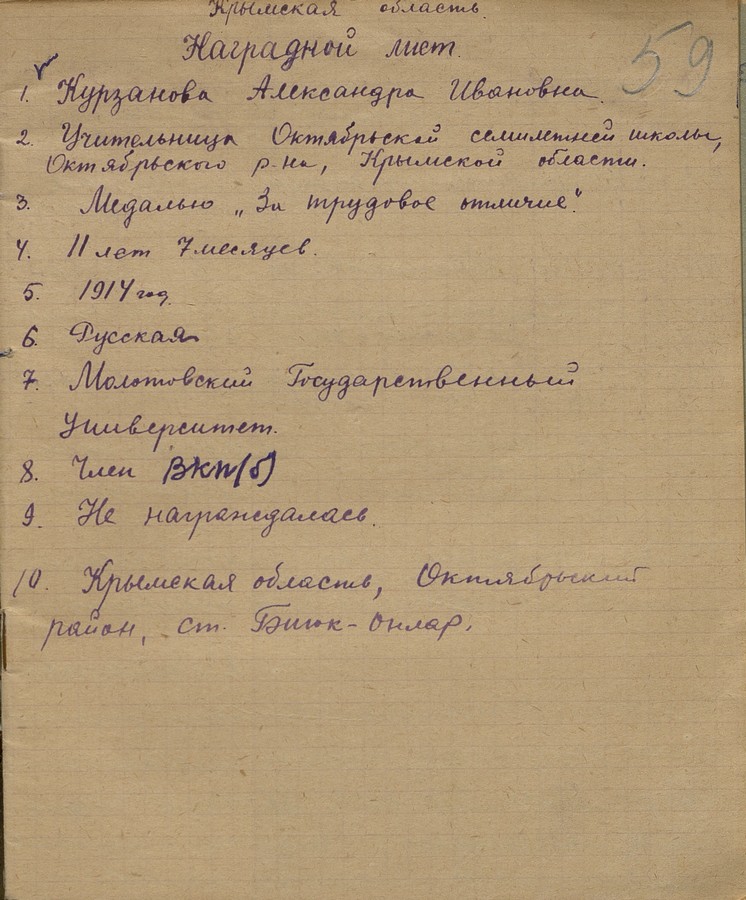 Крымская область.
Наградной лист.
59
1. Курзанова Александра Ивановна.
2. Учительница Октябрьской семилетней школы,
Октябрьского р-на, Крымской области.
3. Медалью „За трудовое отличие".
4. 11 лет 7 месяцев.
5. 1914 год.
6. Русская
7. Молотовский Государственный
Университет.
8. Член ВКП(б)
9. Не награждалась.
10. Крымская область, Октябрьский
район, ст. Биюк-Онлар.